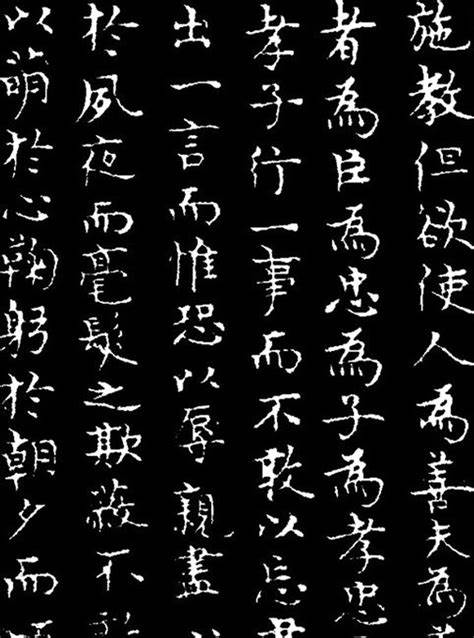 施教但欲使人為善夫為善
者為臣為忠為子為孝忠
孝子行一事而不敢以忘君
出一言而惟恐以辱親盡
於夙夜而毫髮之欺蔽不敢
以萌於心鞠躬於朝夕而